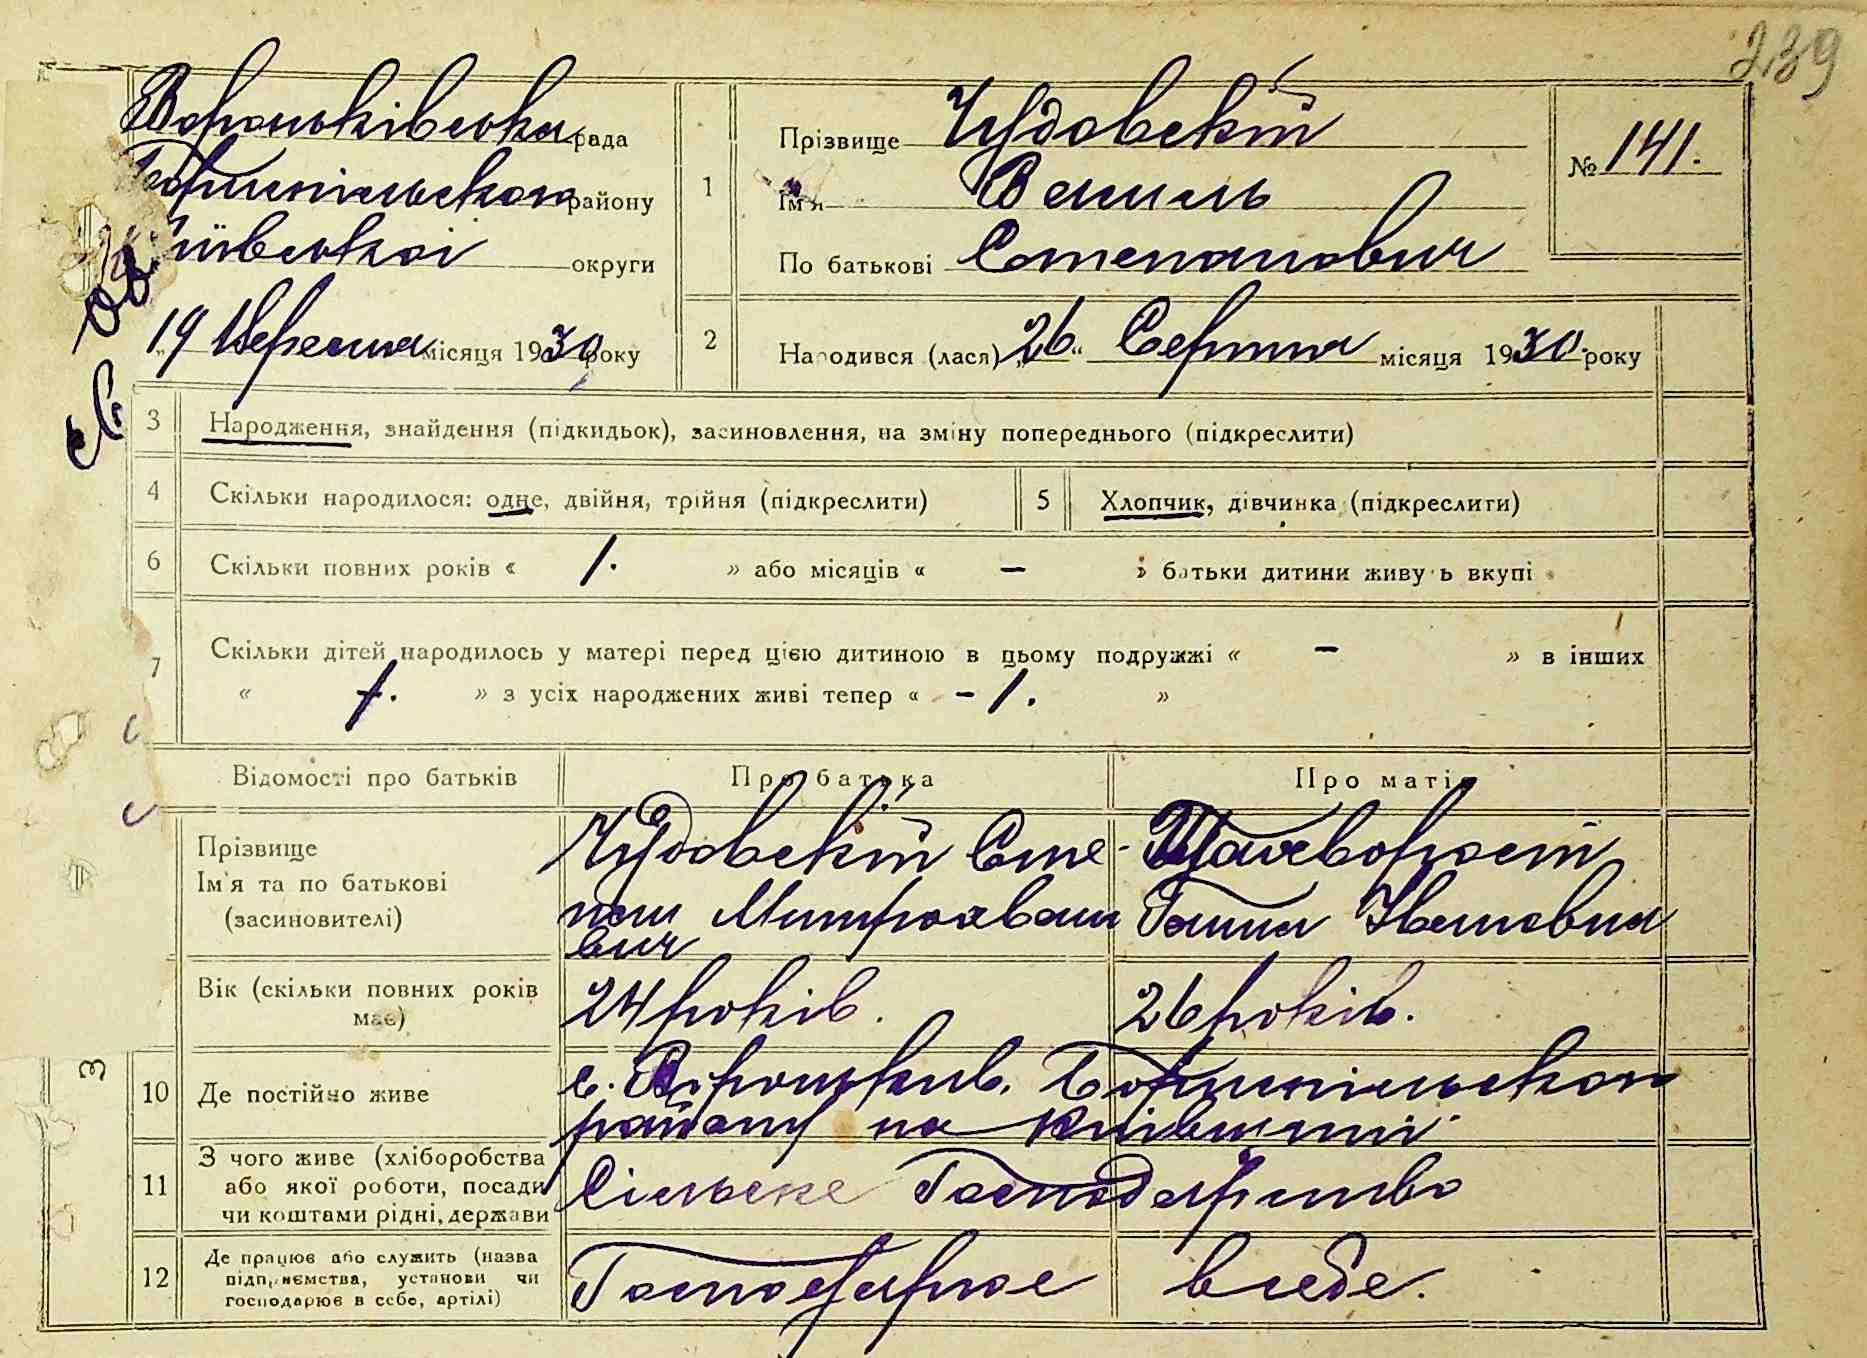 239
Вороньківська рада
Бориспільского району
Київської округи
19 Вересня місяця 1930 року
1 Прізвище Чудовскій
Ім'я Василь
По батькові Степанович
№ 141.
2 Народився (лася) „26“ Серпня місяця 1930 року
3 Народження, знайдення (підкидьок), засиновлення, на зміну попереднього (підкреслити)
4 Скільки народилося: одне, двійня, трійня (підкреслити) 5 Хлопчик, дівчинка (підкреслити)
6 Скільки повних років « 1. » або місяців « — » батьки дитини живуть вкупі
7 Скільки дітей народилось у матері перед цією дитиною в цьому подружжі « — » в інших
« 1. » з усіх народжених живі тепер « - 1. »
Відомості про батьків Про батька Про матір
Прізвище
Ім'я та по батькові
(засиновителі)
Чудовскій Сте-
пан Митрохвано
вич
Ганна Івановна
Вік (скільки повних років
має)
24 років. 26 років.
10 Де постійно живе с. Вороньків. Бориспільского
району на Київщині
11 З чого живе (хліборобства
або якої роботи, посади
чи коштами рідні, держави
Сільське Господарство
12 Де працює або служить (назва
підприємства, установи чи
господарює в себе, артілі)
Господарює в себе.
З